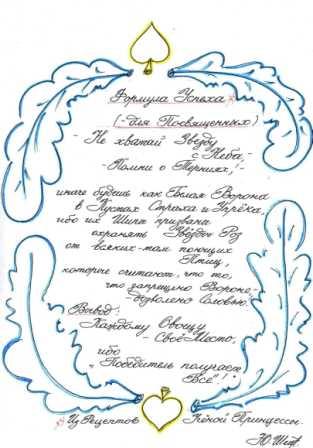 Формула Успеха
(-для Посвящённых)
- Не хватай Звезду
с Неба,
- Помни о Терниях, -
иначе будешь как Белая Ворона
в Кустах Страха и Упрёка,
ибо их Шипы призваны
охранять Звёзды Роз
от всяких-там поющих
Птиц,
которые считают, что то,
что запрещено Вороне -
дозволено Соловью.
Вывод:
Каждому Овощу
- Своё Место,
ибо
"Победитель получает
Всё"!
Из Рецептов Принцессы.